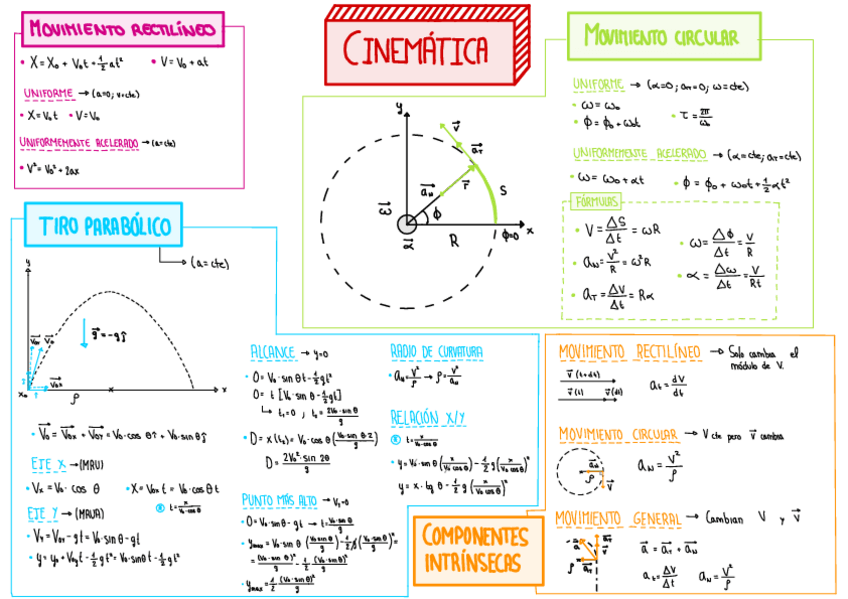 CINEMÁTICA
MOVIMIENTO RECTILÍNEO
• X = X₀ + V₀t + ½at² • V = V₀ + at
UNIFORME → (a=0; v=cte)
• X = V₀t • V = V₀
UNIFORMEMENTE ACELERADO → (a=cte)
• V² = V₀² + 2ax
MOVIMIENTO CIRCULAR
UNIFORME → (α=0; aT=0; ω=cte)
• ω = ω₀
• ϕ = ϕ₀ + ω₀t • τ = 2π/ω₀
UNIFORMEMENTE ACELERADO → (α=cte; aT=cte)
• ω = ω₀ + αt • ϕ = ϕ₀ + ω₀t + ½αt²
FÓRMULAS
• V = ΔS/Δt = ωR
• aN = V²/R = ω²R
• aT = ΔV/Δt = Rα
• ω = Δϕ/Δt = V/R
• α = Δω/Δt = V/Rt
y
v⃗
a⃗T
a⃗N
r⃗
S
ω⃗
ϕ
α⃗
R
ϕ=0
x
TIRO PARABÓLICO
→ (a=cte)
y
g⃗ = -gĵ
V₀y V₀
V₀x
x₀
x
• V⃗₀ = V⃗₀x + V⃗₀y = V₀·cos θ î + V₀·sin θ ĵ
EJE X → (MRU)
• Vx = V₀· cos θ • X = V₀x t = V₀·cos θ t
⊗ t = x/V₀·cos θ
EJE Y → (MRUA)
• Vy = V₀y - gt = V₀·sin θ - gt
• y = y₀ + V₀y t - ½gt² = V₀·sin θ t - ½gt²
ALCANCE → y=0
• 0 = V₀·sin θ t - ½gt²
0 = t [V₀·sin θ - ½gt]
↳ t₁ = 0 ; t₂ = 2V₀·sin θ/g
• D = x(t₂) = V₀·cos θ (V₀·sin θ·2/g)
D = 2V₀²·sin 2θ/g
PUNTO MÁS ALTO → Vy=0
• 0 = V₀·sin θ - gt → t = V₀·sin θ/g
• ymax = V₀·sin θ (V₀·sin θ/g) - ½g(V₀·sin θ/g)² =
= (V₀·sin θ)²/g - ½ (V₀·sin θ)²/g
• ymax = ½ (V₀·sin θ)²/g
RADIO DE CURVATURA
• aN = V²/ρ → ρ = V²/aN
RELACIÓN X/Y
⊗ t = x/V₀·cos θ
• y = V₀·sin θ (x/V₀·cos θ) - ½g(x/V₀·cos θ)²
y = x·tg θ - ½g(x/V₀·cos θ)²
COMPONENTES
INTRÍNSECAS
MOVIMIENTO RECTILÍNEO → Solo cambia el
módulo de V.
v⃗(t+dt)
v⃗(t) v⃗(dt)
at = dV/dt
MOVIMIENTO CIRCULAR → V cte pero v⃗ cambia
a⃗N
ρ
v⃗
aN = V²/ρ
MOVIMIENTO GENERAL → Cambian V y v⃗
a⃗ = a⃗T + a⃗N
at = ΔV/Δt aN = V²/ρ